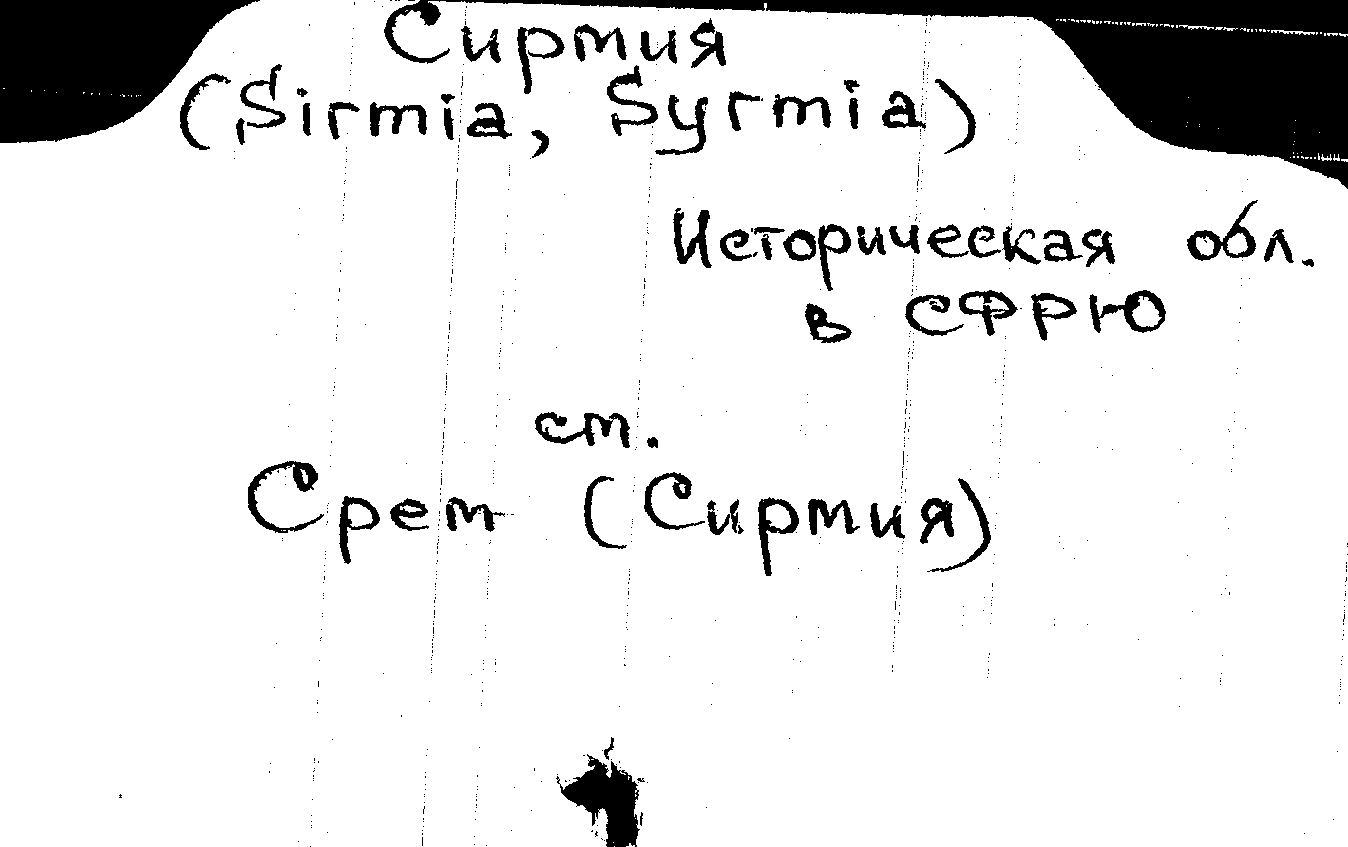 Сирмия
(Sirmia, Syrmia)
Историческая обл.
в СФРЮ
ст.
Срем (Сирмия)